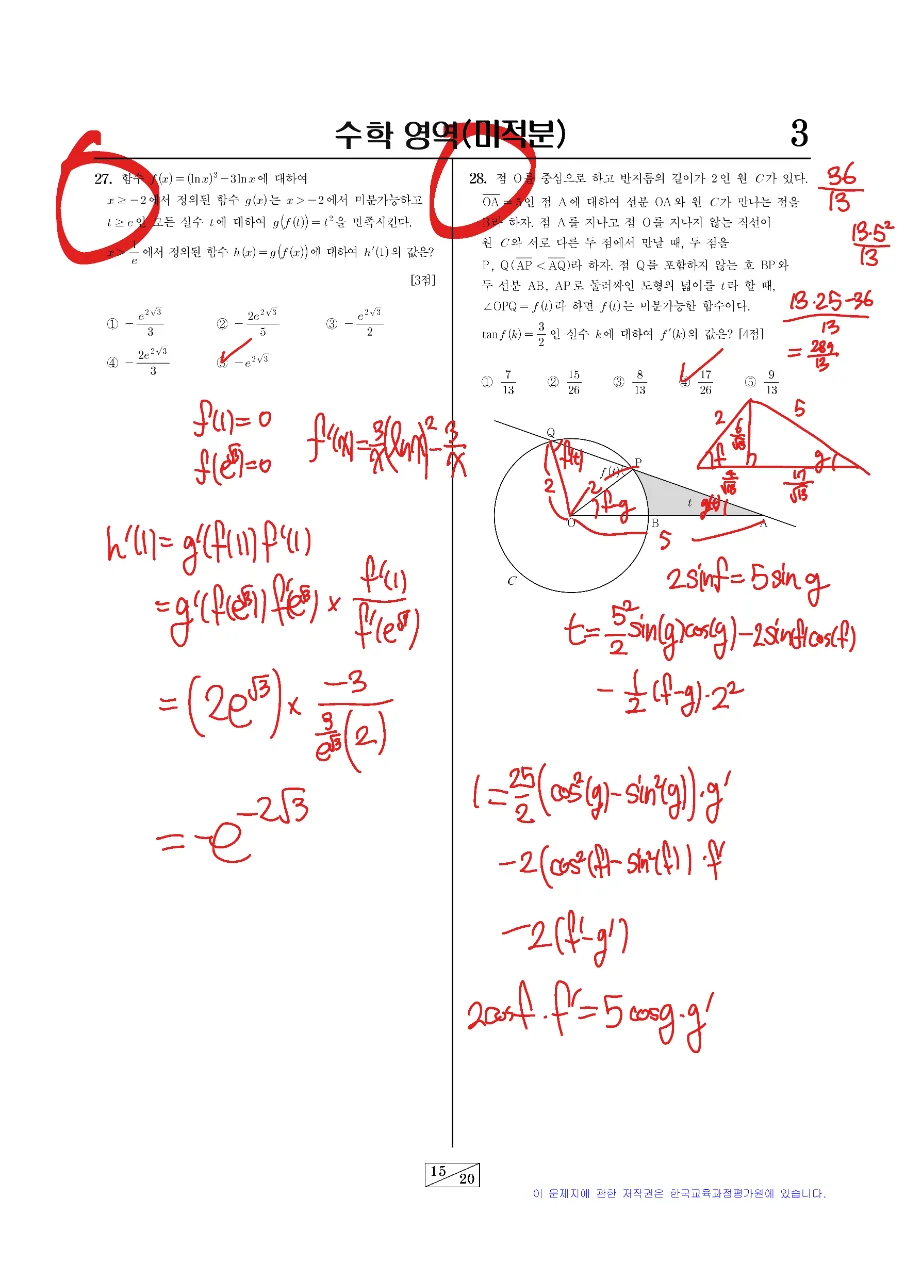 수학 영역(미적분)
3
27. 함수 f(x)=(ln x)³-3ln x에 대하여
x≥-2에서 정의된 함수 g(x)는 x>-2에서 미분가능하고
t≥e인 모든 실수 t에 대하여 g(f(t))=t²을 만족시킨다.
x>1/e에서 정의된 함수 h(x)=g(f(x))에 대하여 h′(1)의 값은?
[3점]
① -e^{2√3}/3 ② -2e^{2√3}/5 ③ -e^{2√3}/2
④ -2e^{2√3}/3 ⑤ -e^{2√3}
f(1)=0
f(e^{√3})=0
f′(x)=3/x(ln x)²-3/x
h′(1)=g′(f(1))f′(1)
=g′(f(e^{√3}))f′(e^{√3})×f′(1)/f′(e^{√3})
=(2e^{√3})×-3/(3/e^{√3}(2))
=-e^{-2√3}
28. 점 O를 중심으로 하고 반지름의 길이가 2인 원 C가 있다.
OA=5인 점 A에 대하여 선분 OA와 원 C가 만나는 점을
B라 하자. 점 A를 지나고 점 O를 지나지 않는 직선이
원 C와 서로 다른 두 점에서 만날 때, 두 점을
P, Q(AP<AQ)라 하자. 점 Q를 포함하지 않는 호 BP와
두 선분 AB, AP로 둘러싸인 도형의 넓이를 t라 할 때,
∠OPQ=f(t)라 하면 f(t)는 미분가능한 함수이다.
tan f(k)=3/2인 실수 k에 대하여 f′(k)의 값은? [4점]
① 7/13 ② 15/26 ③ 8/13 ④ 17/26 ⑤ 9/13
36/13
13·5²/13
(13·25-36)/13
=289/13
2 6/√13 h 5
f g
4/√13 17/√13
Q f(t) P
f(t)
2 2 f-g t g(t)
O B A
5
C
2sinf=5sing
t=5²/2 sin(g)cos(g)-2sin(f)cos(f)
-1/2(f-g)·2²
1=25/2(cos²(g)-sin²(g))·g′
-2(cos²(f)-sin²(f))·f′
-2(f′-g′)
2cosf·f′=5cosg·g′
15
20
이 문제지에 관한 저작권은 한국교육과정평가원에 있습니다.